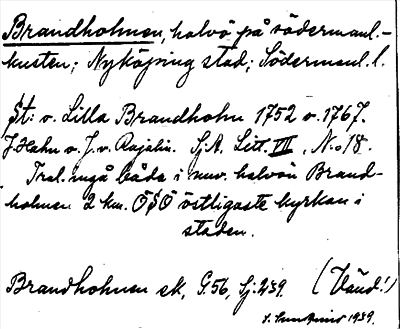 Brandholmen, halvö på södermanl.-
kusten; Nyköping stad; Södermanl. l.
St: o. Lilla Brandholm 1752 o. 1767.
J. Hahn o. J. v. Rajalin. Sj.A. Litt. VII, N:o 18.
Trol. ingå båda i nuv. halvön Brand-
holmen 2 km. ÖSÖ östligaste kyrkan i
staden.
Brandholmen ek, G.56, Sj:239. (Vänd!)
1939.